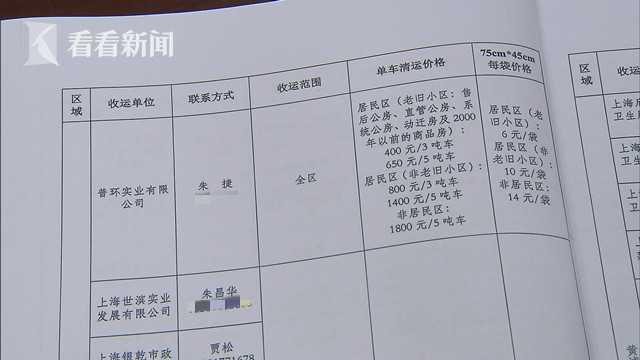 看看新闻
区域
收运单位
联系方式
收运范围
单车清运价格
75cm*45cm
每袋价格
普环实业有限
公司
朱 捷
全区
居民区（老旧小区：售
后公房、直管公房、系
统公房、动迁房及 2000
年以前的商品房）：
400 元/3 吨车
650 元/5 吨车
居民区（非老旧小区）：
800 元/3 吨车
1400 元/5 吨车
非居民区：
1800 元/5 吨车
居民区（老
旧小区）：
6 元/袋
居民区（非
老旧小区）：
10 元/袋
非居民区：
14 元/袋
上海世滨实业
发展有限公司
朱昌华
贾松
区域
收运
上海
卫生
上海
卫生
上海
上海
卫
上海